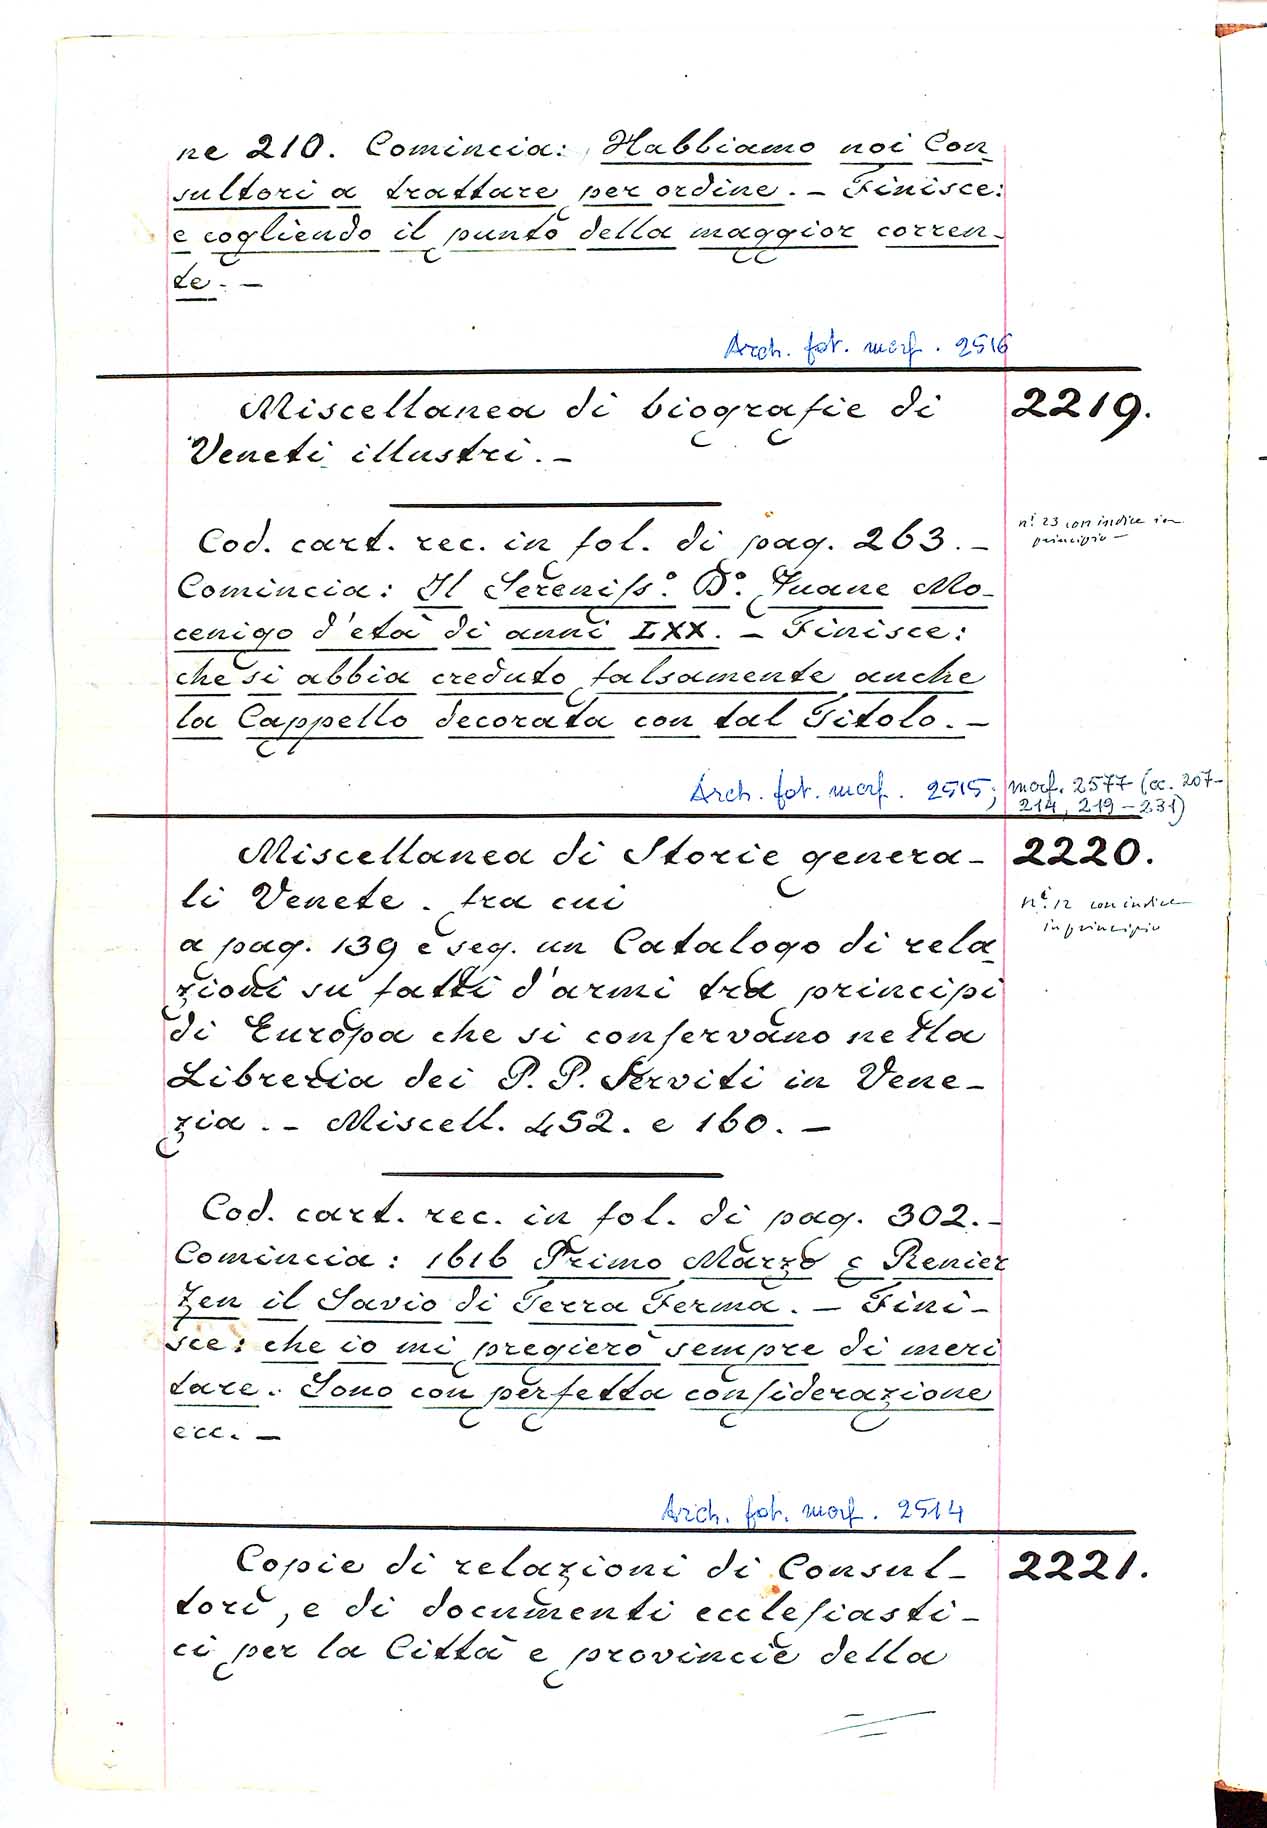 ne 210. Comincia: Habbiamo noi Con
sultori a trattare per ordine. – Finisce:
e cogliendo il punto della maggior corren-
te. –
Arch. fot. marf. 2516
Miscellanea di biografie di
Veneti illustri. –
2219.
Cod. cart. rec. in fol. di pag. 263. –
n.i 23 con indice in
principio –
Comincia: Il Sereniss.o D.o Zuane Mo-
cenigo d'età di anni LXX. – Finisce:
che si abbia creduto falsamente anche
la Cappello decorata con tal Titolo. –
Arch. fot. marf. 2515; marf. 2577 (cc. 207-
214, 219–231)
Miscellanea di Storie genera-
2220.
li Venete. tra cui
n.i 12 con indice
in principio
a pag. 139 e seg. un Catalogo di rela
zioni su fatti d'armi tra principi
di Europa che si conservano nella
Libreria dei P. P. Serviti in Vene-
zia. – Miscell. 452. e 160. –
Cod. cart. rec. in fol. di pag. 302. –
Comincia: 1616 Primo Marzo Renier
Zen il Savio di Terra Ferma. – Fini-
sce: che io mi pregierò sempre di meri
tare. Sono con perfetta considerazione
ecc. –
Arch. fot. marf. 2514
Copie di relazioni di Consul-
2221.
tori, e di documenti ecclesiasti-
ci per la Città e provincie della